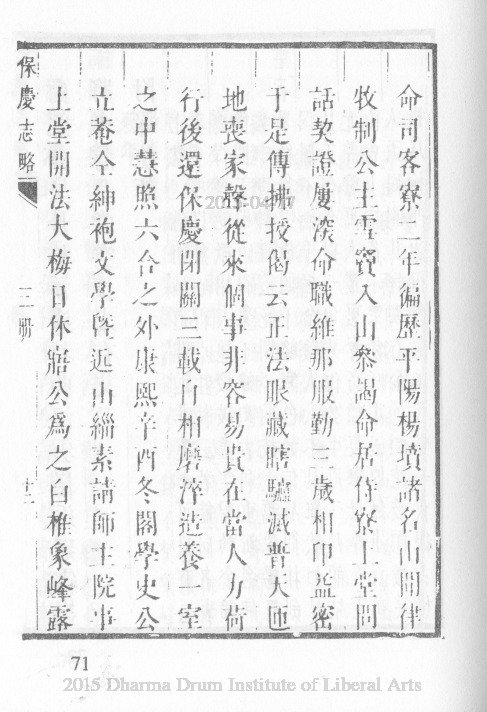 命司客寮二年徧歷平陽楊墳諸名山聞律
牧制公主雪竇入山叅謁命居侍寮上堂問
話契證屢深命職維那服勤三歲相印益密
于是傳拂授偈云正法眼藏瞎驢滅普天匝
地喪家聲從來個事非容易貴在當人力荷
行後還保慶閉關三載自相磨淬造養一室
之中慧照六合之外康熙辛酉冬閣學史公
立菴仝紳袍文學曁近山緇素請師主院事
上堂開法大梅日休寤公爲之白椎象峰露
保慶志略
三册
十二
2015/04/17
71
2015 Dharma Drum Institute of Liberal Arts